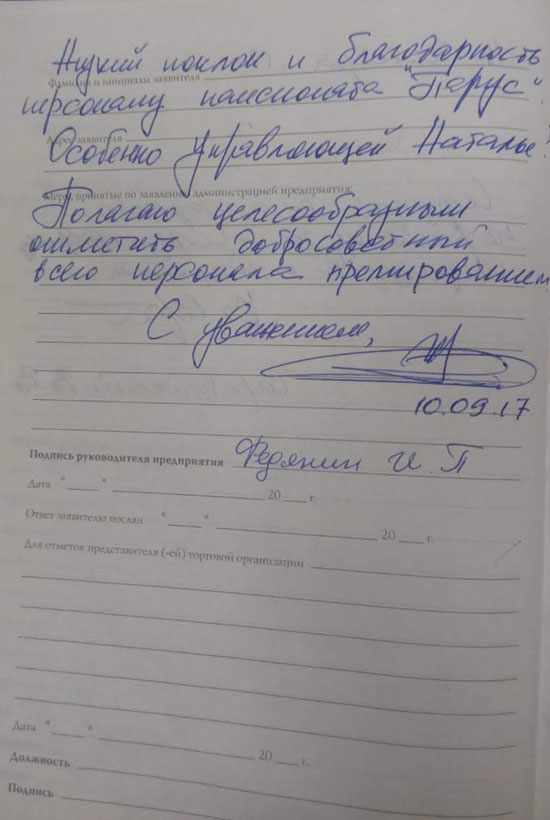 Низкий поклон и благодарность
Фамилия и инициалы заявителя
персоналу пансионата "Парус".
Адрес заявителя
Особенно управляющей Наталье!
Меры, принятые по заявлению администрацией предприятия:
Полагаю целесообразным
отметить добросовестный
всего персонала премированием
С уважением,
10.09.17
Подпись руководителя предприятия Федянин И.П
Дата "____" ____ 20 ___ г.
Ответ заявителю послан "____" ____ 20 ___ г.
Для отметок представителя (-ей) торговой организации
Дата "____" ____ 20 ___ г.
Должность
Подпись